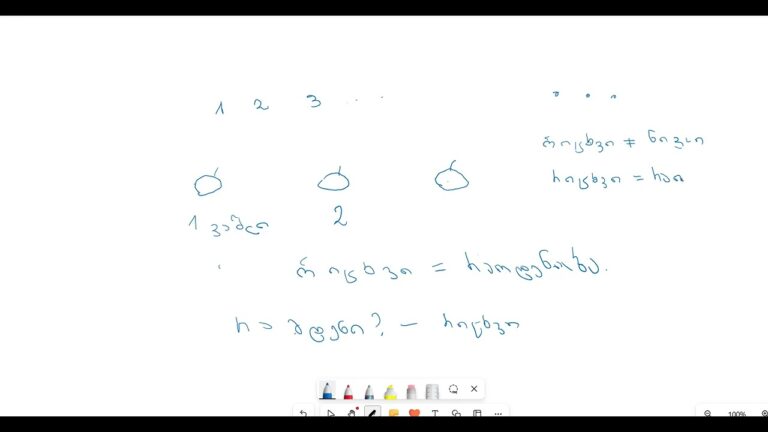 1 2 3 ....
რიცხვი ≠ ნივთი
რიცხვი = რაო
1 ვაშლი 2
რიცხვი = რაოდენობა.
რამდენი? – რიცხვი
100%